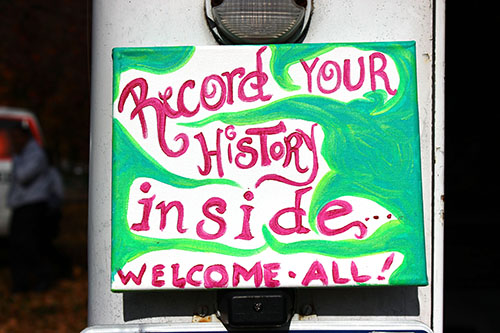 Record YOUR
HiSTORY
inside...
WELCOME · ALL!